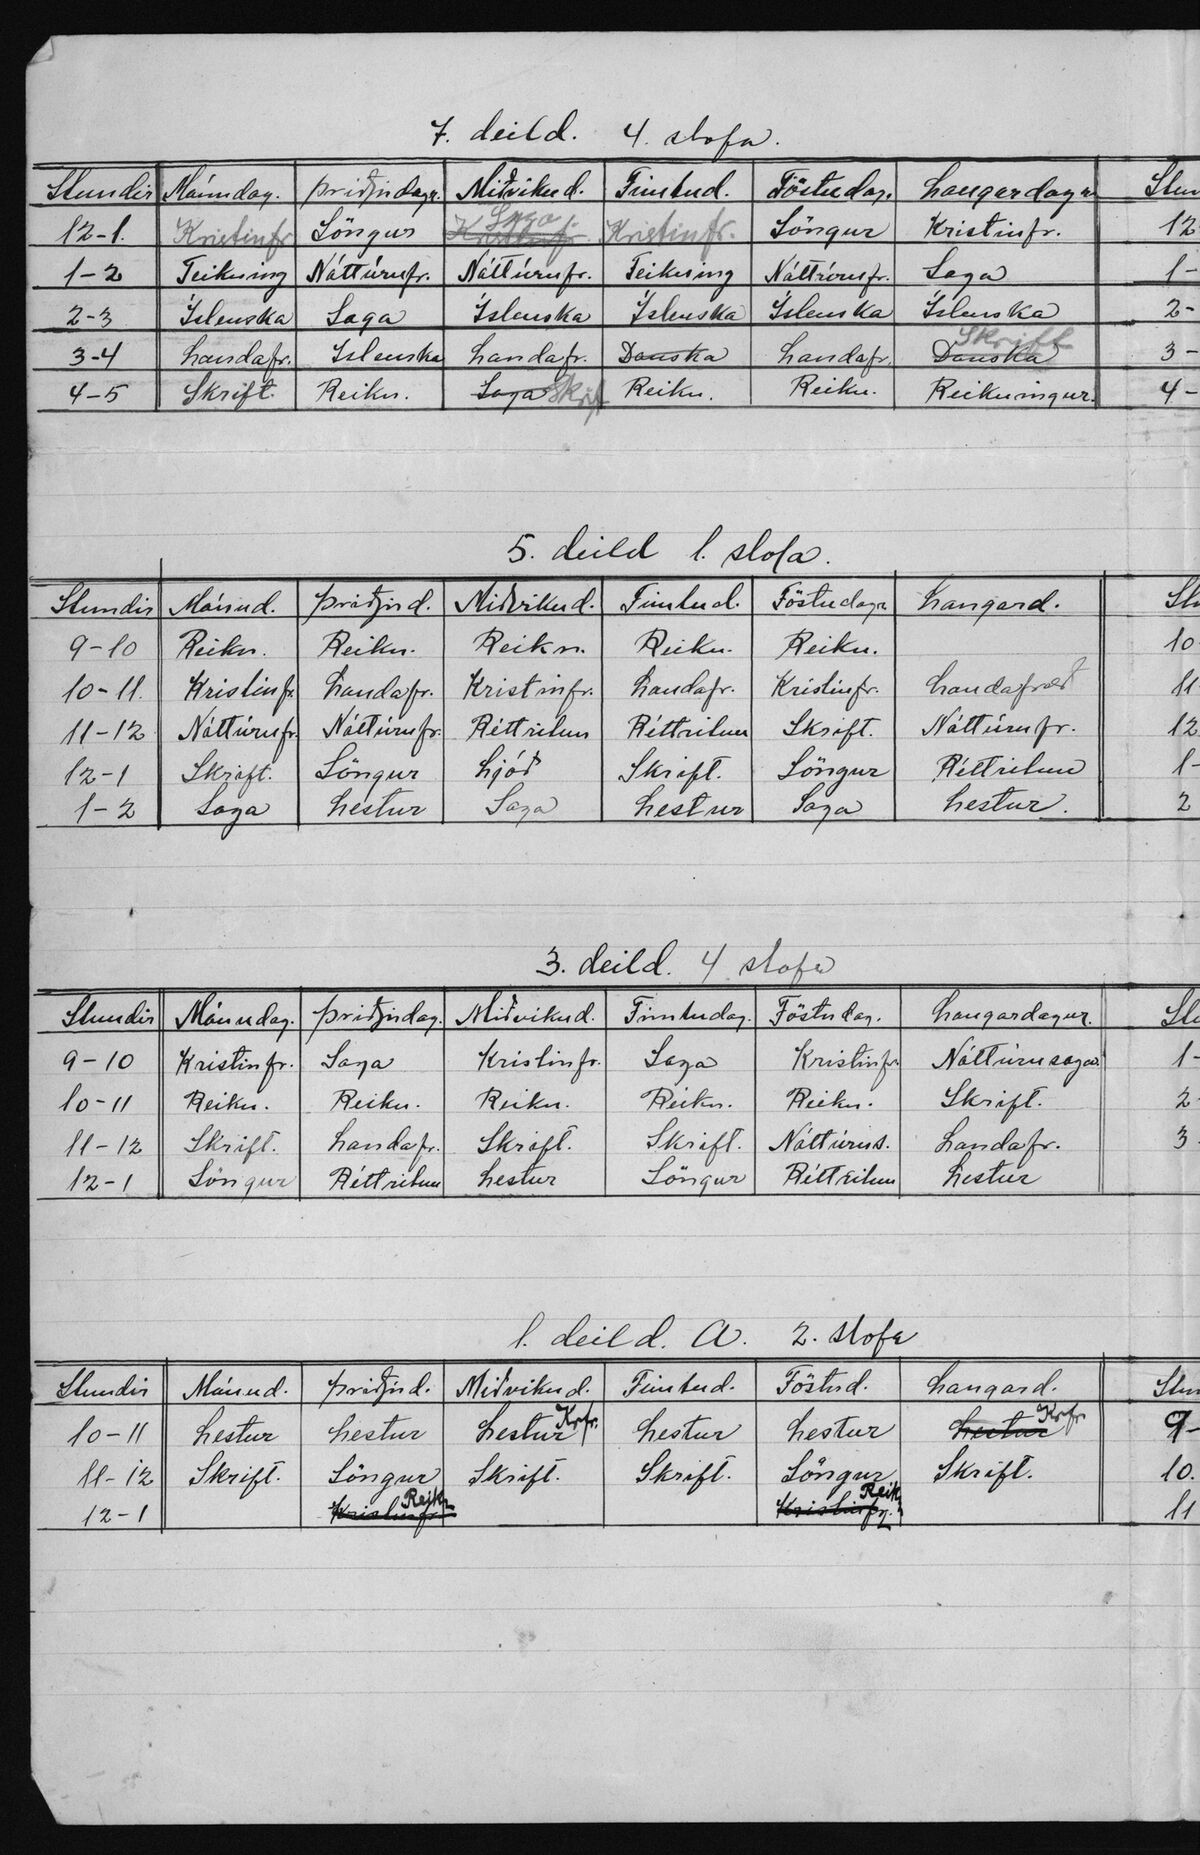 7. deild. 4. stofa.
Stundir Mánudag. Þriðjudagr. Miðvikud. Fimtud. Föstudag. Laugardagur Stun
12-1. Kristinfr. Söngur Kristinfr. Saga Kristinfr. Söngur Kristinfr. 12
1-2 Teikning Náttúrufr. Náttúrufr. Teikning Náttúrufr. Saga 1-
2-3 Íslenska Saga Íslenska Íslenska Íslenska Íslenska 2-
3-4 Landafr. Íslenska Landafr. Danska Landafr. Danska Skrift 3-
4-5 Skrift. Reikn. Saga Skrift Reikn. Reikn. Reikningur. 4-
5. deild 1. stofa.
Stundir Mánud. Þriðjud. Miðvikud. Fimtud. Föstudagr Laugard. Stu
9-10 Reikn. Reikn. Reikn. Reikn. Reikn. 10
10-11. Kristinfr. Landafr. Kristinfr. Landafr. Kristinfr. Landafræði 11
11-12 Náttúrufr. Náttúrufr. Réttritun Réttritun Skrift. Náttúrufr. 12
12-1 Skrift. Söngur Ljóð Skrift. Söngur Réttritun 1-
1-2 Saga Lestur Saga Lestur Saga Lestur. 2
3. deild. 4 stofa
Stundir Mánudag. Þriðjudag. Miðvikud. Fimtudag. Föstudag. Laugardagur. Stu
9-10 Kristinfr. Saga Kristinfr. Saga Kristinfr. Náttúrusaga. 1-
10-11 Reikn. Reikn. Reikn. Reikn. Reikn. Skrift. 2-
11-12 Skrift. Landafr. Skrift. Skrift. Náttúrus. Landafr. 3-
12-1 Söngur Réttritun Lestur Söngur Réttritun Lestur
1. deild. A. 2. stofa
Stundir Mánud. Þriðjud. Miðvikud. Fimtud. Föstud. Laugard. Stun
10-11 Lestur Lestur Lestur Krfr. Lestur Lestur Lestur Krfr 9-
11-12 Skrift. Söngur Skrift. Skrift. Söngur Skrift. 10.
12-1 Kristinfr. Reikn Kristinfr. Reikn 11